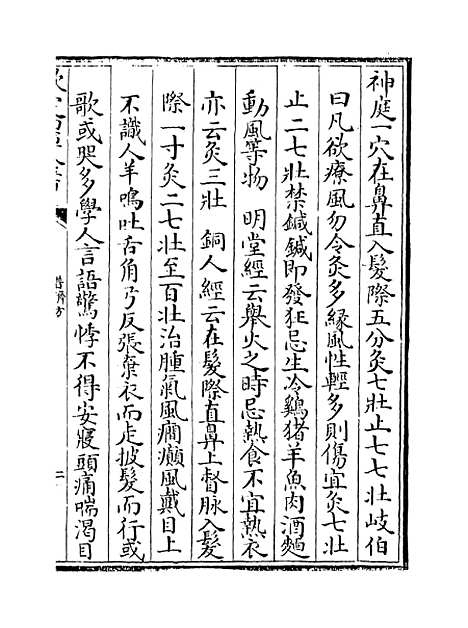 神庭一穴在鼻直入髮際五分灸七壯止七七壯岐伯
曰凡欲療風勿令灸多緣風性輕多則傷宜灸七壯
止二七壯禁鍼鍼即發狂忌生冷鷄猪羊魚肉酒麵
動風等物 明堂經云舉火之時忌熱食不宜熱衣
亦云灸三壯 銅人經云在髮際直鼻上督脉入髮
際一寸灸二七壯至百壯治腫氣風癎癲風戴目上
不識人羊鳴吐舌角弓反張棄衣而走披髮而行或
歌或哭多學人言語驚悸不得安寢頭痛喘渴目
普濟方
二